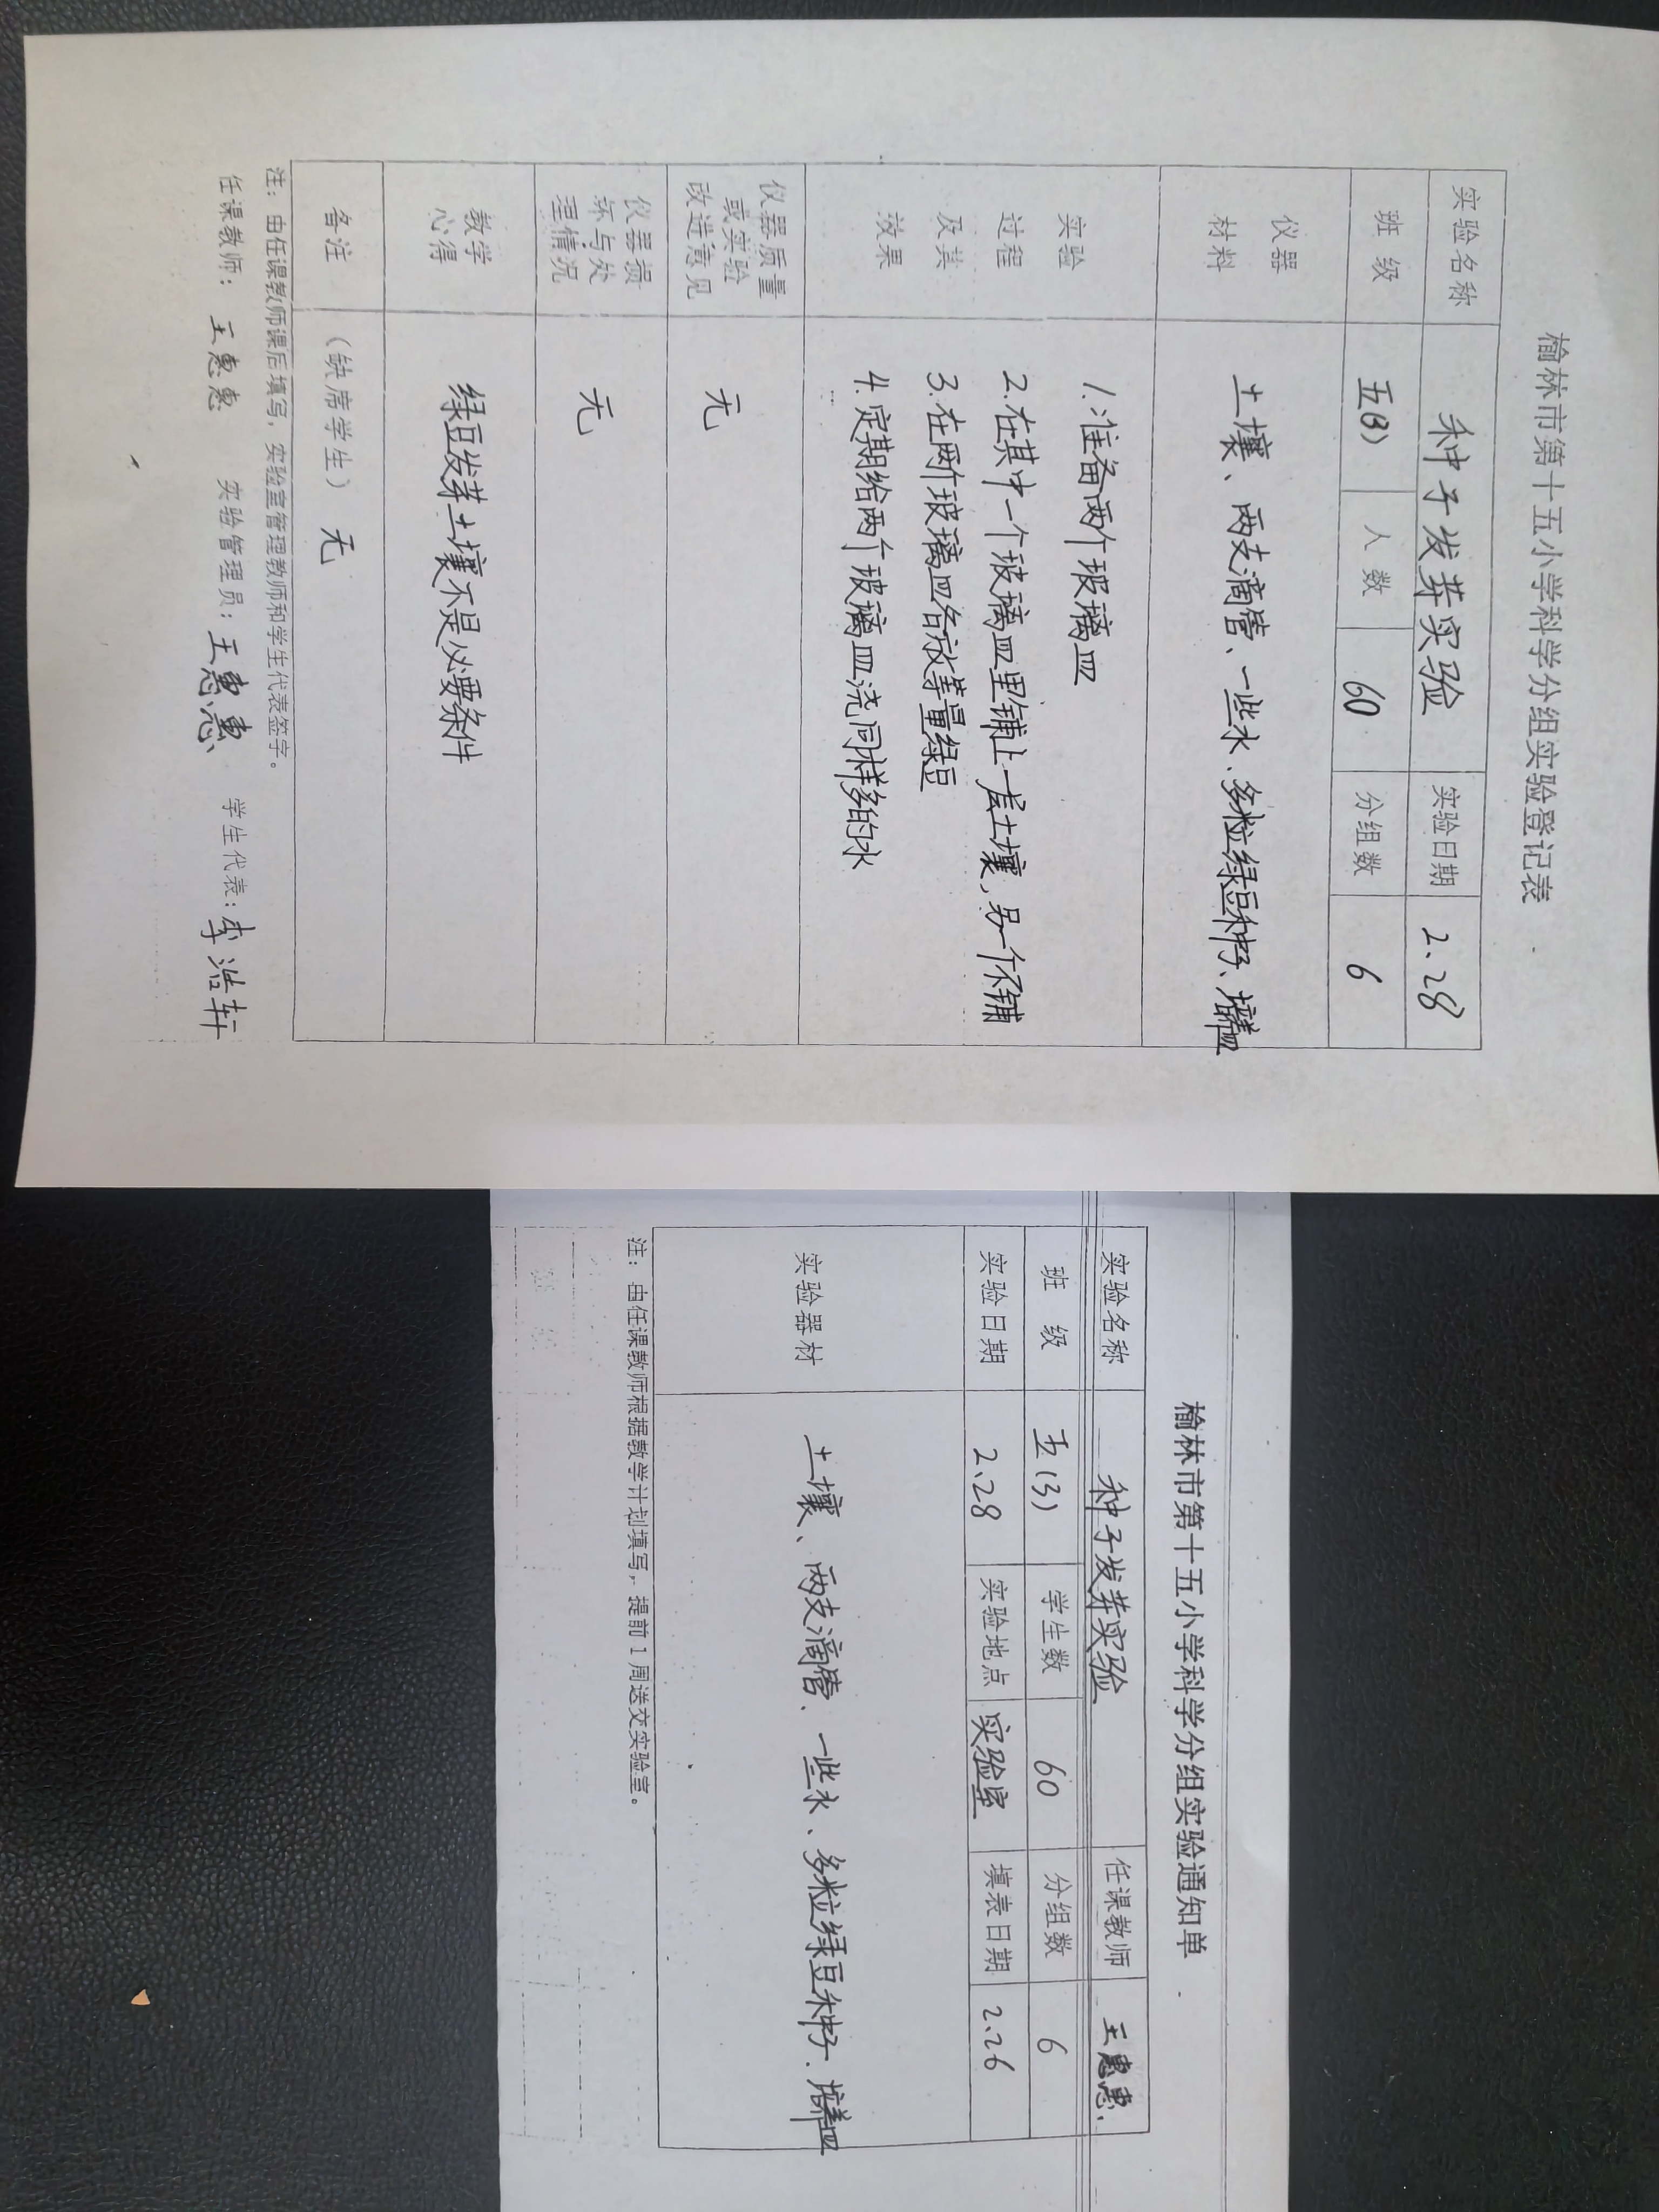 榆林市第十五小学科学分组实验登记表
实验名称 种子发芽实验 实验日期 2.28
班 级 五(3) 人 数 60 分组数 6
仪器
材料
土壤、两支滴管、一些水、多粒绿豆种子、培养皿
实验
过程
及其
效果
1.准备两个玻璃皿
2.在其中一个玻璃皿里铺上一层土壤,另一个不铺
3.在两个玻璃皿各放等量绿豆
4.定期给两个玻璃皿浇同样多的水
仪器质量
或实验
改进意见
无
仪器损
坏与处
理情况
无
教学
心得
绿豆发芽土壤不是必要条件
备注 (缺席学生) 无
注:由任课教师课后填写,实验室管理教师和学生代表签字。
任课教师: 王惠惠 实验管理员: 王惠惠 学生代表: 李浩轩
榆林市第十五小学科学分组实验通知单
实验名称 种子发芽实验 任课教师 王惠惠
班 级 五(3) 学生数 60 分组数 6
实验日期 2.28 实验地点 实验室 填表日期 2.26
实验器材 土壤、两支滴管、一些水、多粒绿豆种子、培养皿
注:由任课教师根据教学计划填写,提前1周送交实验室。